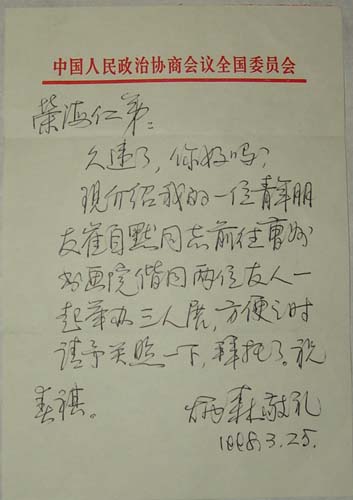 中国人民政治协商会议全国委员会
荣海仁弟：
久违了，你好吗？
现介绍我的一位青年朋
友崔自默同志前往曹州
书画院偕同两位友人一
起举办三人展，方便之时
请予关照一下，拜托了。祝
春祺。
炳森敬礼
1998.3.25.